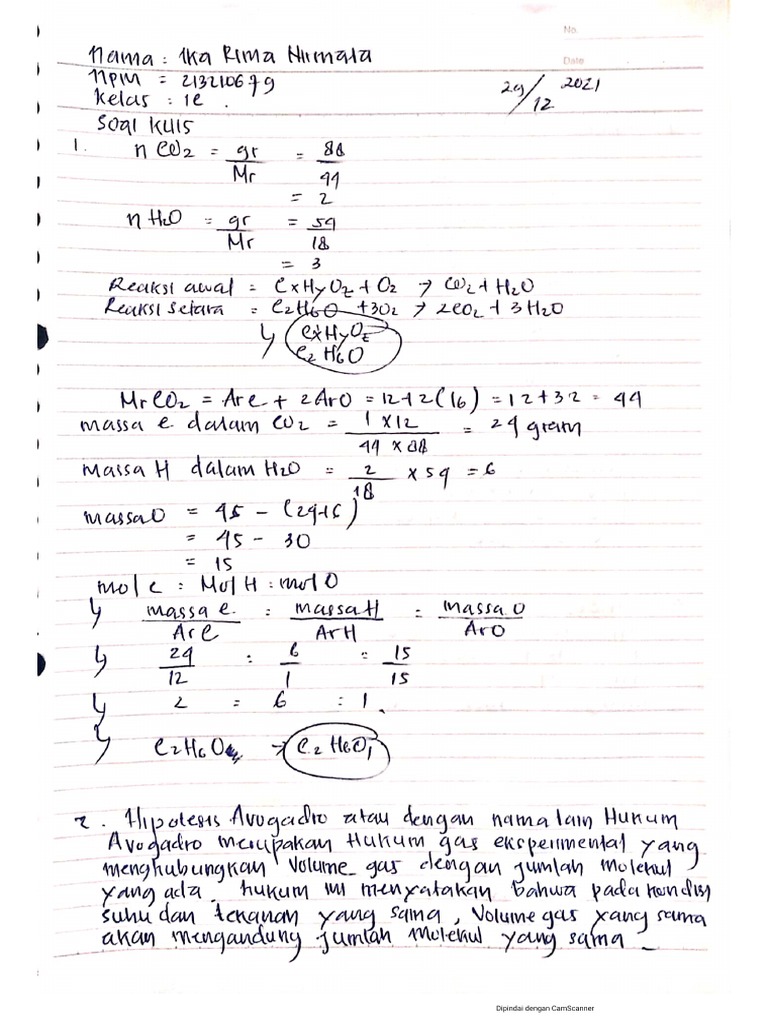 No.
Date
Nama : Ika Rima Nirmala
NPM = 213210679
Kelas : 1C .
29/12 2021
Soal Kuis
1. n CO2 = gr/Mr = 88/44
= 2
n H2O = gr/Mr = 54/18
= 3
Reaksi awal = CxHyOz + O2 → CO2 + H2O
Reaksi setara = C2H6O + 3O2 → 2CO2 + 3H2O
↳ CxHyOz
C2H6O
Mr CO2 = Ar C + 2 Ar O = 12 + 2(16) = 12 + 32 = 44
massa C dalam CO2 = 1 x 12 / 44 x 88 = 24 gram
Massa H dalam H2O = 2/18 x 54 = 6
massa O = 45 - (24+6)
= 45 - 30
= 15
mol C : Mol H : mol O
↳ massa C / Ar C : massa H / Ar H : massa O / Ar O
↳ 24/12 : 6/1 : 15/15
↳ 2 : 6 : 1
↳ C2H6O → C2H6O1
2. Hipotesis Avogadro atau dengan nama lain Hukum
Avogadro merupakan Hukum gas eksperimental yang
menghubungkan Volume gas dengan jumlah molekul
yang ada. hukum ini menyatakan bahwa pada kondisi
suhu dan tekanan yang sama, Volume gas yang sama
akan mengandung jumlah Molekul yang sama
Dipindai dengan CamScanner